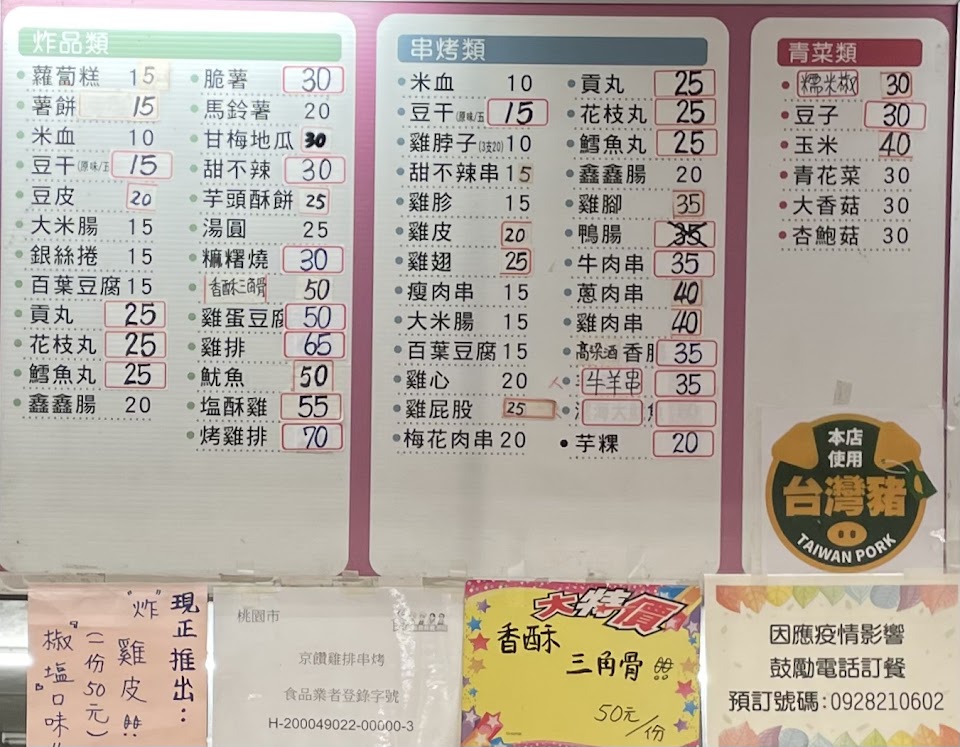 炸品類
蘿蔔糕 15
薯餅 15
米血 10
豆干(原味/五 15
豆皮 20
大米腸 15
銀絲捲 15
百葉豆腐 15
貢丸 25
花枝丸 25
鱈魚丸 25
鑫鑫腸 20
脆薯 30
馬鈴薯 20
甘梅地瓜 30
甜不辣 30
芋頭酥餅 25
湯圓 25
麻糬燒 30
香酥三角骨 50
雞蛋豆腐 50
雞排 65
魷魚 50
塩酥雞 55
烤雞排 70
串烤類
米血 10
豆干(原味/五 15
雞脖子(3支20) 10
甜不辣串 15
雞胗 15
雞皮 20
雞翅 25
瘦肉串 15
大米腸 15
百葉豆腐 15
雞心 20
雞屁股 25
梅花肉串 20
貢丸 25
花枝丸 25
鱈魚丸 25
鑫鑫腸 20
雞腳 35
鴨腸 35
牛肉串 35
蔥肉串 40
雞肉串 40
高粱酒香腸 35
牛羊串 35
芋粿 20
青菜類
糯米椒 30
豆子 30
玉米 40
青花菜 30
大香菇 30
杏鮑菇 30
本店
使用
台灣豬
TAIWAN PORK
現正推出：
"炸"雞皮!!
(一份50元)
"椒塩口味"
桃園市
京饡雞排串烤
食品業者登錄字號
H-200049022-00000-3
大特價
香酥
三角骨!!
50元/份
因應疫情影響
鼓勵電話訂餐
預訂號碼:0928210602